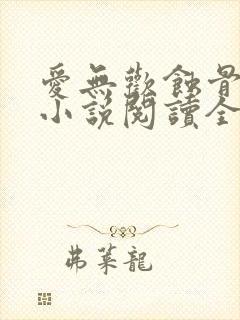 愛無歡蝕骨
小說閱讀全
弗萊龍